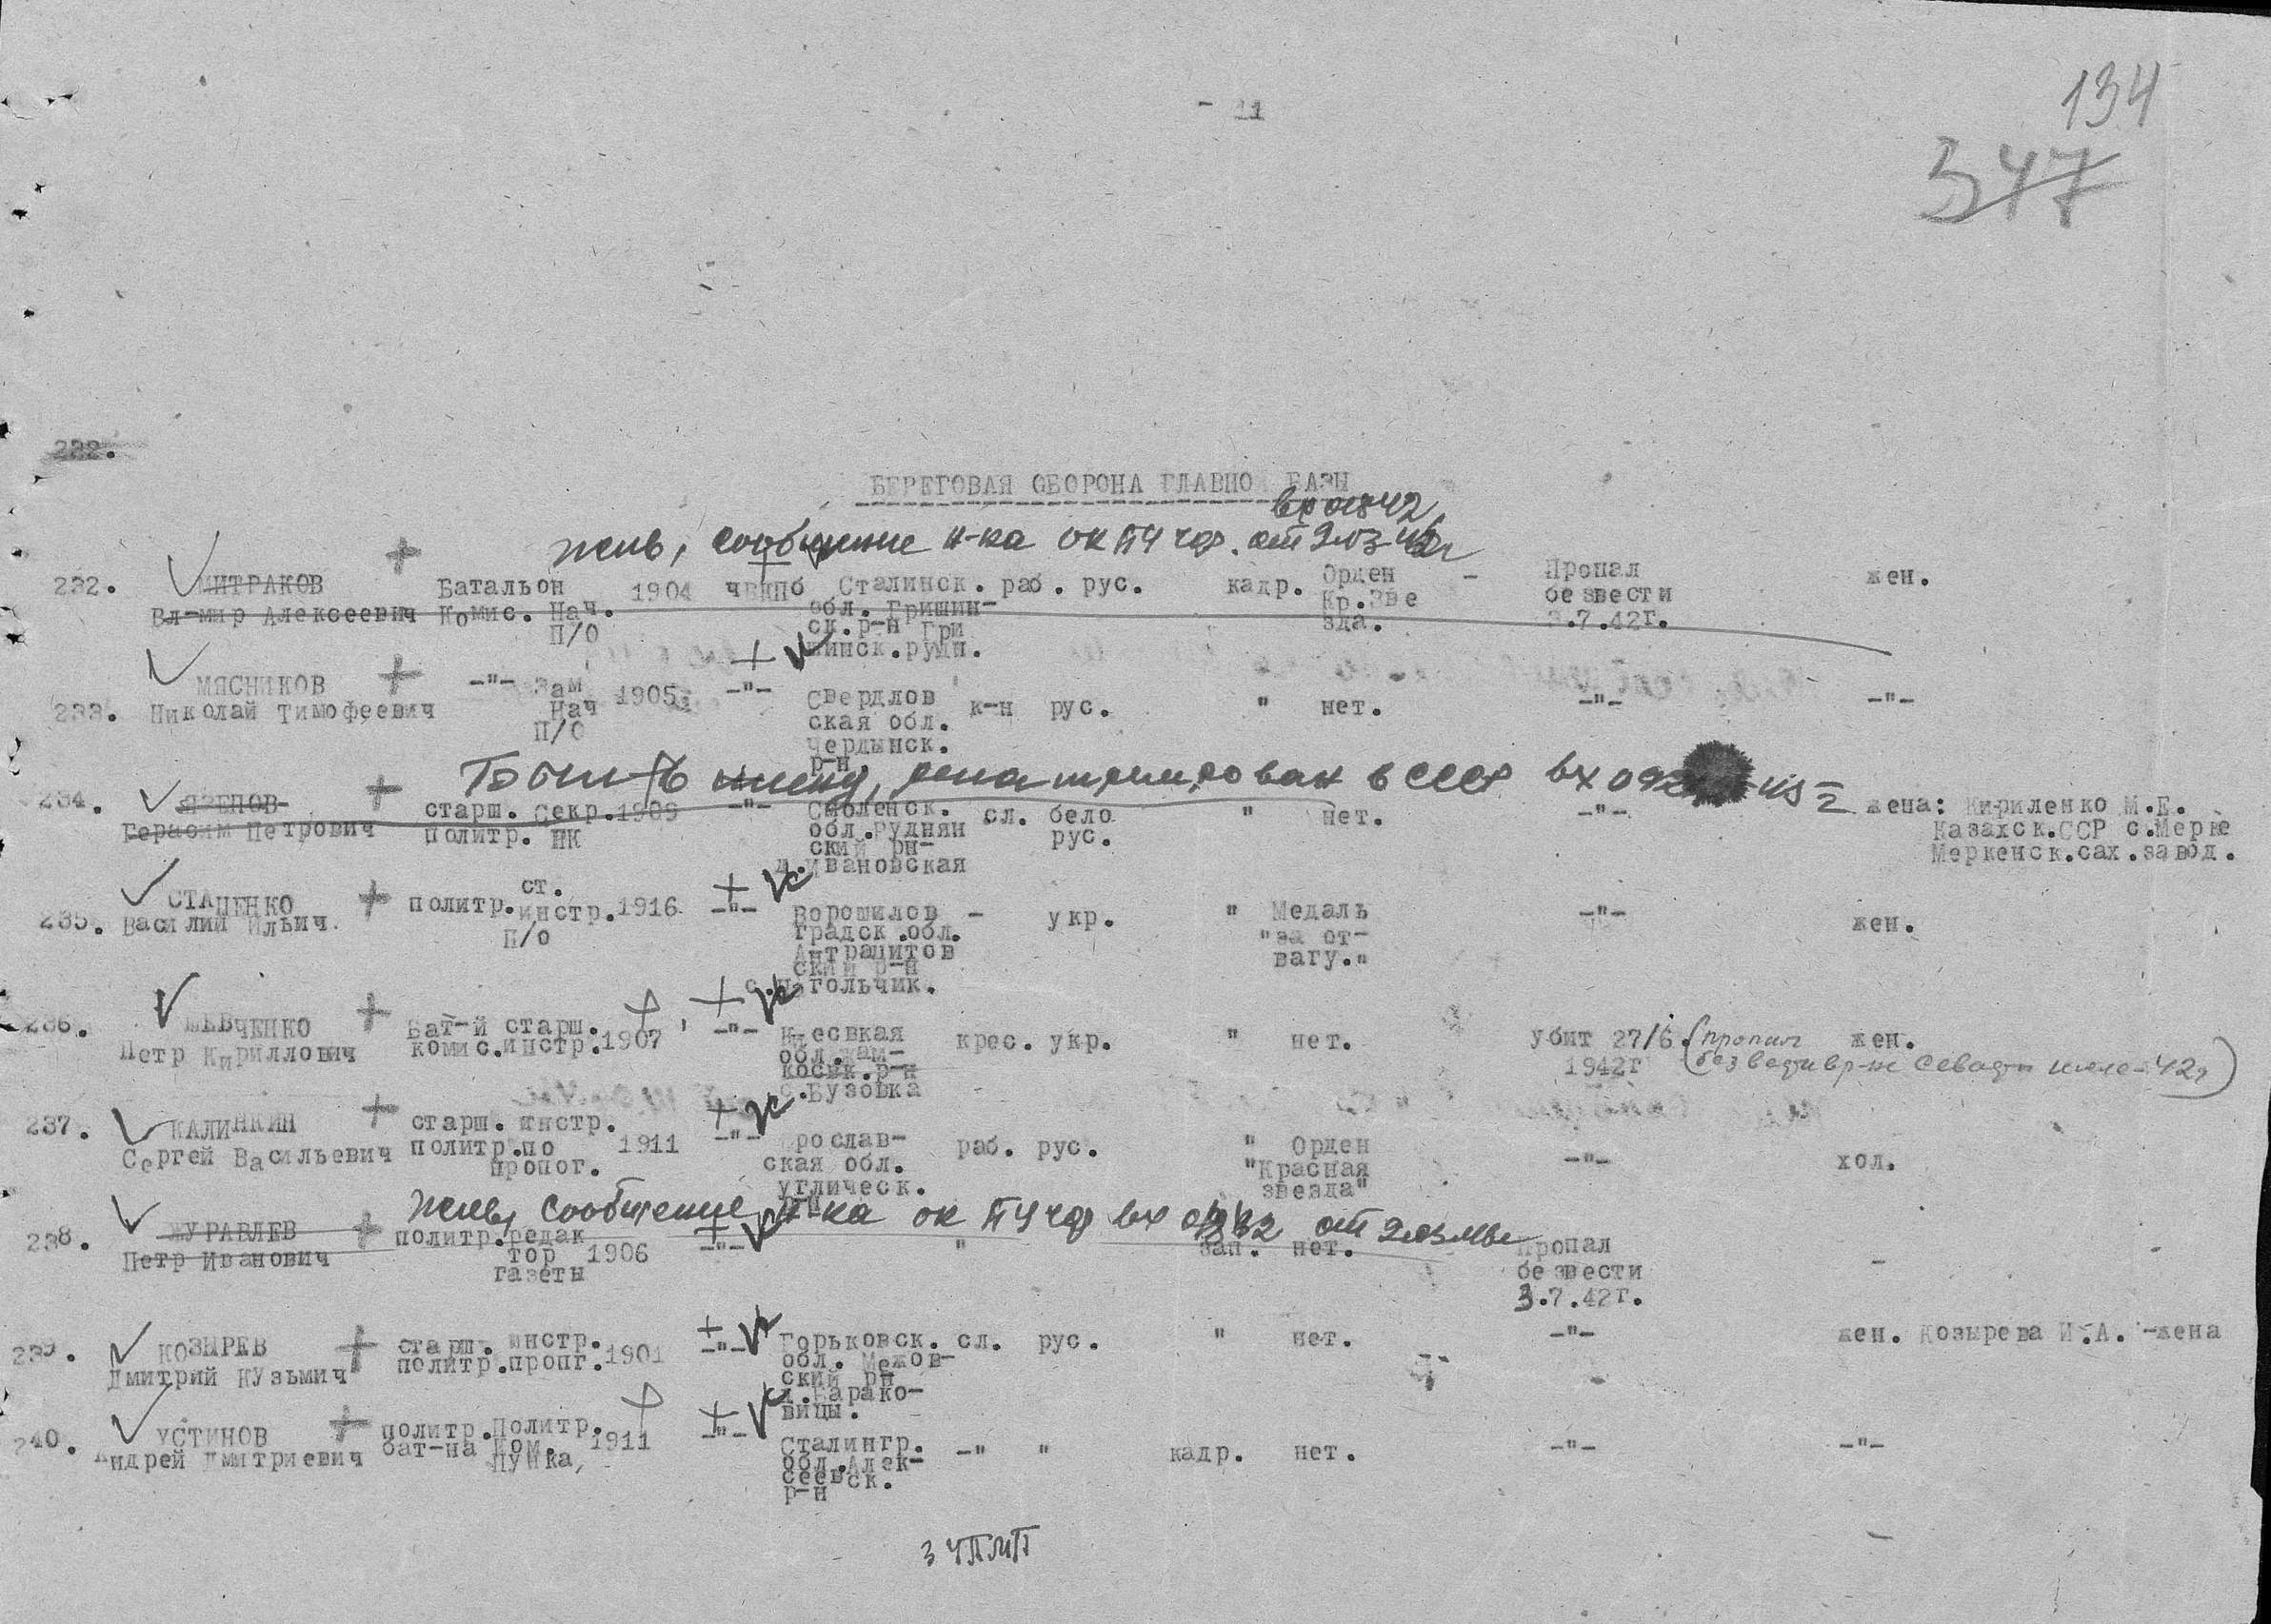 134
347
- 11
232.
БЕРЕГОВАЯ ОБОРОНА ГЛАВНОЙ БАЗЫ
жив, сообщение н-ка ОК ПУ ЧФ. от
232. МИТРАКОВ Батальон 1904 ЧВКПб Сталинск. раб. рус. кадр. Орден - Пропал жен.
Вл-мир Алексеевич Комис. Нач. обл. Гришин- Кр.Зве безвести
П/О ск. р-н Гри зда. 3.7.42г.
шинск.рудн.
МЯСНИКОВ -"- Зам 1905 -"- Свердлов
233. Николай Тимофеевич Нач ская обл. к-н рус. " нет. -"- -"-
П/О Чердынск.
р-н
был в плену, репатриирован в СССР вх
234. старш. Секр. 1909 -"- Смоленск. сл. бело " нет. -"- жена: Кириленко М.Е.
Герасим Петрович политр. ПК обл.Руднян рус. Казахск.ССР с.Мерке
ский рн- Меркенск.сах.завод.
д.Ивановская
СТАЦЕНКО политр. ст. 1916 -"- Ворошилов - укр. " Медаль -"- жен.
235. Василий Ильич. инстр. градск.обл. "за от-
П/о Антрацитов вагу."
ский р-н
с.Нагольчик.
236. ШЕВЧЕНКО Бат-й старш. 1907 -"- Киесвкая крес. укр. " нет. убит 27/6. (пропал жен.
Петр Кириллович комис.инстр. обл. Жам- 1942г без вести в р-не Севаст июле-42г)
косик.р-н
с.Бузовка
237. КАЛИНКИН старш. инстр. 1911 -"- Ярослав- раб. рус. " Орден -"- хол.
Сергей Васильевич политр.по ская обл. "Красная
пропог. углическ. звезда"
рн
Жив, сообщение н-ка ОК ПУ ЧФ вх от
238. ЖУРАВЛЕВ политр.редак 1906 -"- " зап. нет. Пропал -
Петр Иванович тор безвести
газеты 3.7.42г.
239. КОЗЫРЕВ старш. инстр. 1901 -"- Горьковск. сл. рус. " нет. -"- жен. Козырева И.А. -жена
Дмитрий Кузьмич политр.пропг. обл. Межов-
ский рн
д.Барако-
вицы.
240. УСТИНОВ политр.Политр. 1911 -"- Сталингр. -" " кадр. нет. -"- -"-
Андрей Дмитриевич бат-на Ком. обл.Алек-
пунка, сеевск.
р-н